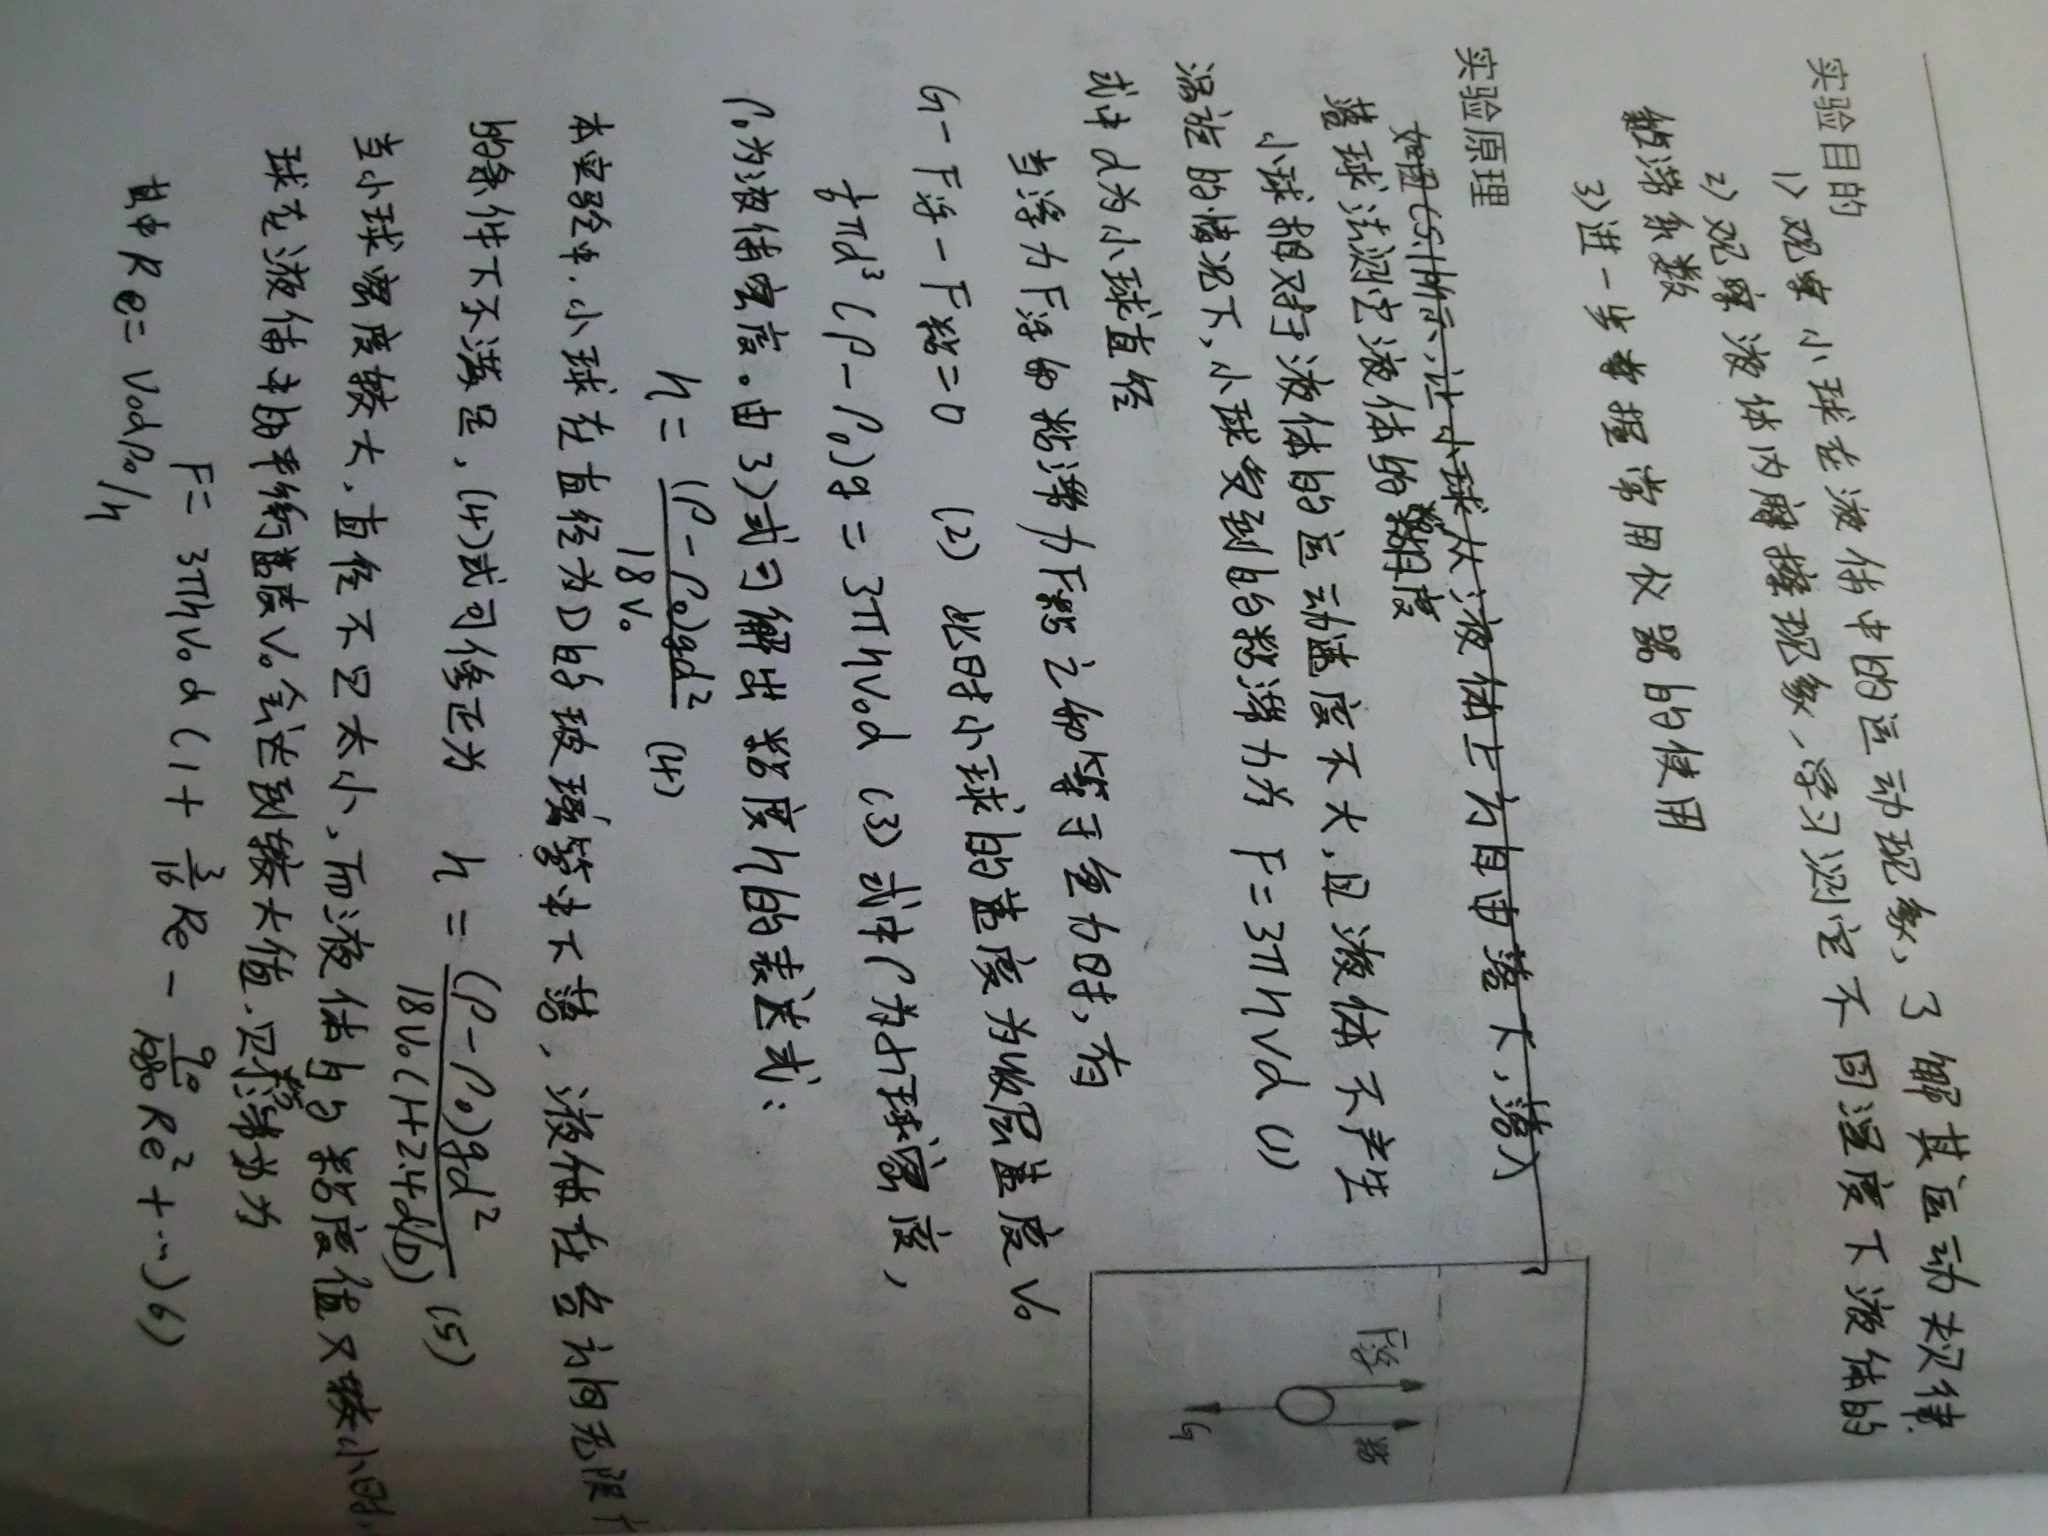 实验目的
1) 观察小球在液体中的运动现象，了解其运动规律
2) 观察液体内摩擦现象，学习测定不同温度下液体的
黏滞系数
3) 进一步掌握常用仪器的使用
实验原理
如图(5.1)所示，让小球从液体上方自由落下，落入
落球法测定液体的黏度
小球相对于液体的运动速度不大，且液体不产生
涡旋的情况下，小球受到的黏滞力为 F=3πηvd (1)
式中d为小球直径
当浮力F浮的黏滞力F黏之和等于重力时，有
G-F浮-F黏=0 (2) 此时小球的速度为收尾速度V₀
1/6πd³(ρ-ρ₀)g=3πηV₀d (3) 式中ρ为小球密度，
ρ₀为液体密度。由3)式可解出黏度η的表达式：
η=(ρ-ρ₀)gd²/18V₀ (4)
本实验中，小球在直径为D的玻璃管中下落，液体在各方向无限广
的条件下不满足，(4)式可修正为 η=(ρ-ρ₀)gd²/18V₀(1+2.4d/D) (5)
当小球密度较大，直径不是太小，而液体的黏度值又较小时，
球在液体中的平衡速度V₀会达到较大值，
F=3πηV₀d(1+3/16Re-9/1080Re²+…) 6)
其中Re=V₀dρ₀/η
F浮
黏
G